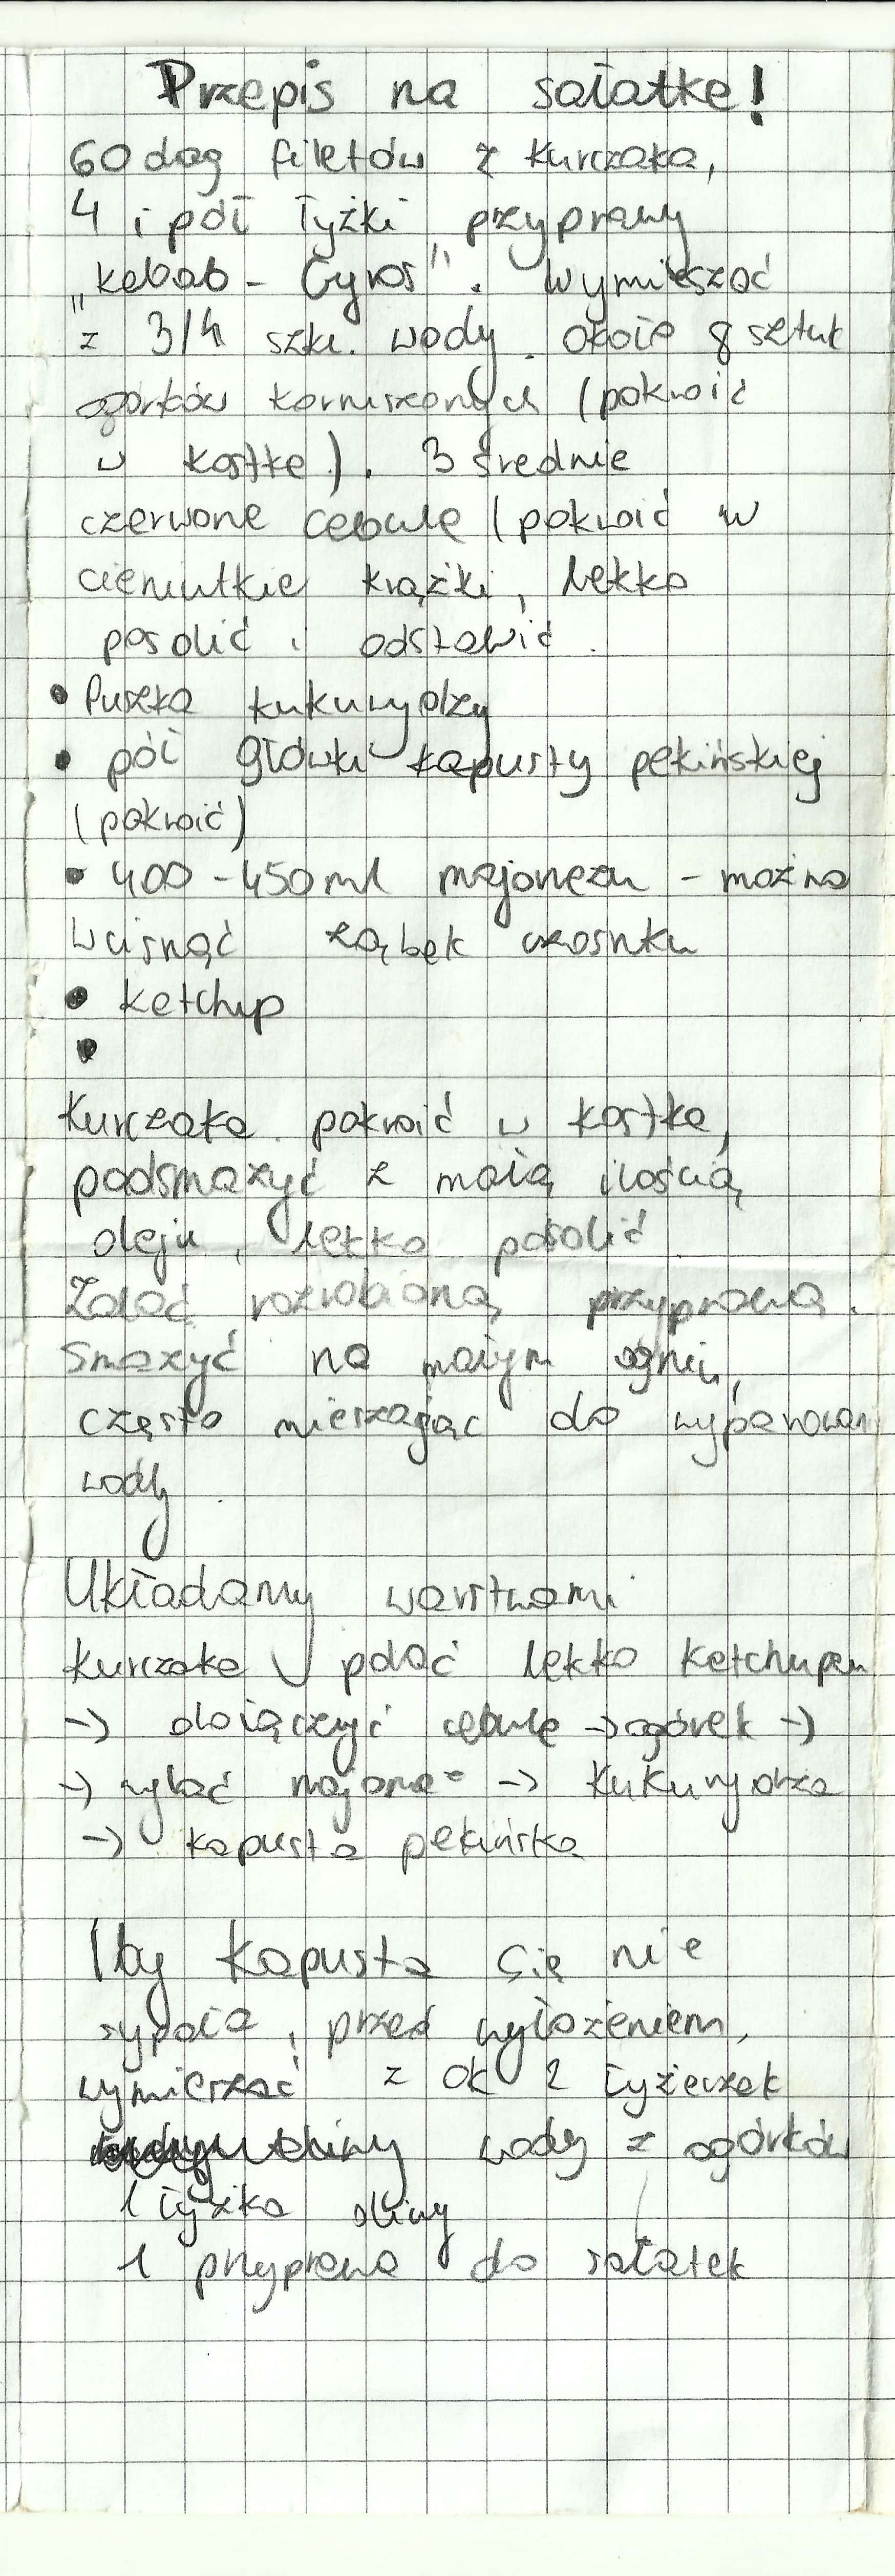 Przepis na sałatkę!
60 dag filetów z kurczaka,
4 i pół łyżki przyprawy
„kebab - Gyros". Wymieszać
z 3/4 szkl. wody. około 8 sztuk
ogórków korniszonych (pokroić
w kostkę). 3 średnie
czerwone cebule (pokroić w
cieniutkie krążki, lekko
posolić i odstawić.
• Puszka kukurydzy
• pół główki kapusty pekińskiej
(pokroić)
• 400 - 450 ml majonezu - można
wcisnąć ząbek czosnku
• ketchup
•
Kurczaka pokroić w kostkę,
podsmażyć z małą ilością
oleju, lekko posolić
Zalać rozrobioną przyprawą.
Smażyć na małym ogniu,
często mieszając do wyparowan
wody.
Układamy warstwami
kurczaka polać lekko ketchupem
-> dołączyć cebulę -> ogórek ->
-> wylać majonez -> kukurydza
-> kapusta pekińska
By kapusta się nie
sypała, przed wyłożeniem,
wymieszać z ok 2 łyżeczek
wody z ogórków
1 łyżka oliwy
1 przyprawa do sałatek